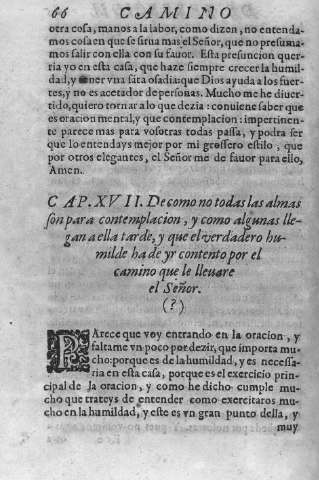 66 CAMINO
otra cosa, manos a la labor, como dizen, no entenda-
mos cosa en que se sirua mas el Señor, que no presuma-
mos salir con ella con su fauor. Esta presuncion quer-
ria yo en esta casa, que haze siempre crecer la humil-
dad, y tener vna sãta osadia: que Dios ayuda a los fuer-
tes, y no es acetador de personas. Mucho me he diuer-
tido, quiero tornar a lo que dezia: conuiene saber que
es oracion mental, y que contemplacion: impertinen-
te parece mas para vosotras todas passa, y podra ser
que lo entendays mejor por mi grossero estilo, que
por otros elegantes, el Señor me de fauor para ello,
Amen.
CAP. XVII. De como no todas las almas
son para contemplacion, y como algunas lle-
gan a ella tarde, y que el verdadero hu-
milde ha de yr contento por el
camino que le lleuare
el Señor.
(?)
PArece que voy entrando en la oracion, y
faltame vn poco por dezir, que importa mu-
cho: porque es de la humildad, y es necessa-
ria en esta casa, porque es el exercicio prin-
cipal de la oracion, y como he dicho cumple mu-
cho que trateys de entender como exercitaros mu-
cho en la humildad, y este es vn gran punto della, y
muy